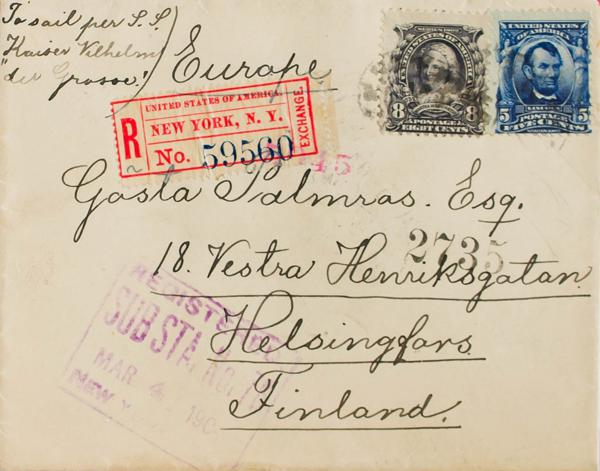 To sail per S.S.
Kaiser Vilhelm
"der Grosse!
Europe
R
UNITED STATES OF AMERICA.
NEW YORK, N. Y.
No. 59560
EXCHANGE.
SERIES 1902
UNITED STATES OF AMERICA
8 8
POSTAGE
EIGHT CENTS
UNITED STATES
LINCOLN
5 5
POSTAGE
45
Gosta Salmras. Esq.
2735
18. Vestra Henriksgatan
Helsingfors.
Finland.
REGISTERED
SUB STA. NO.
MAR 4 190
NEW